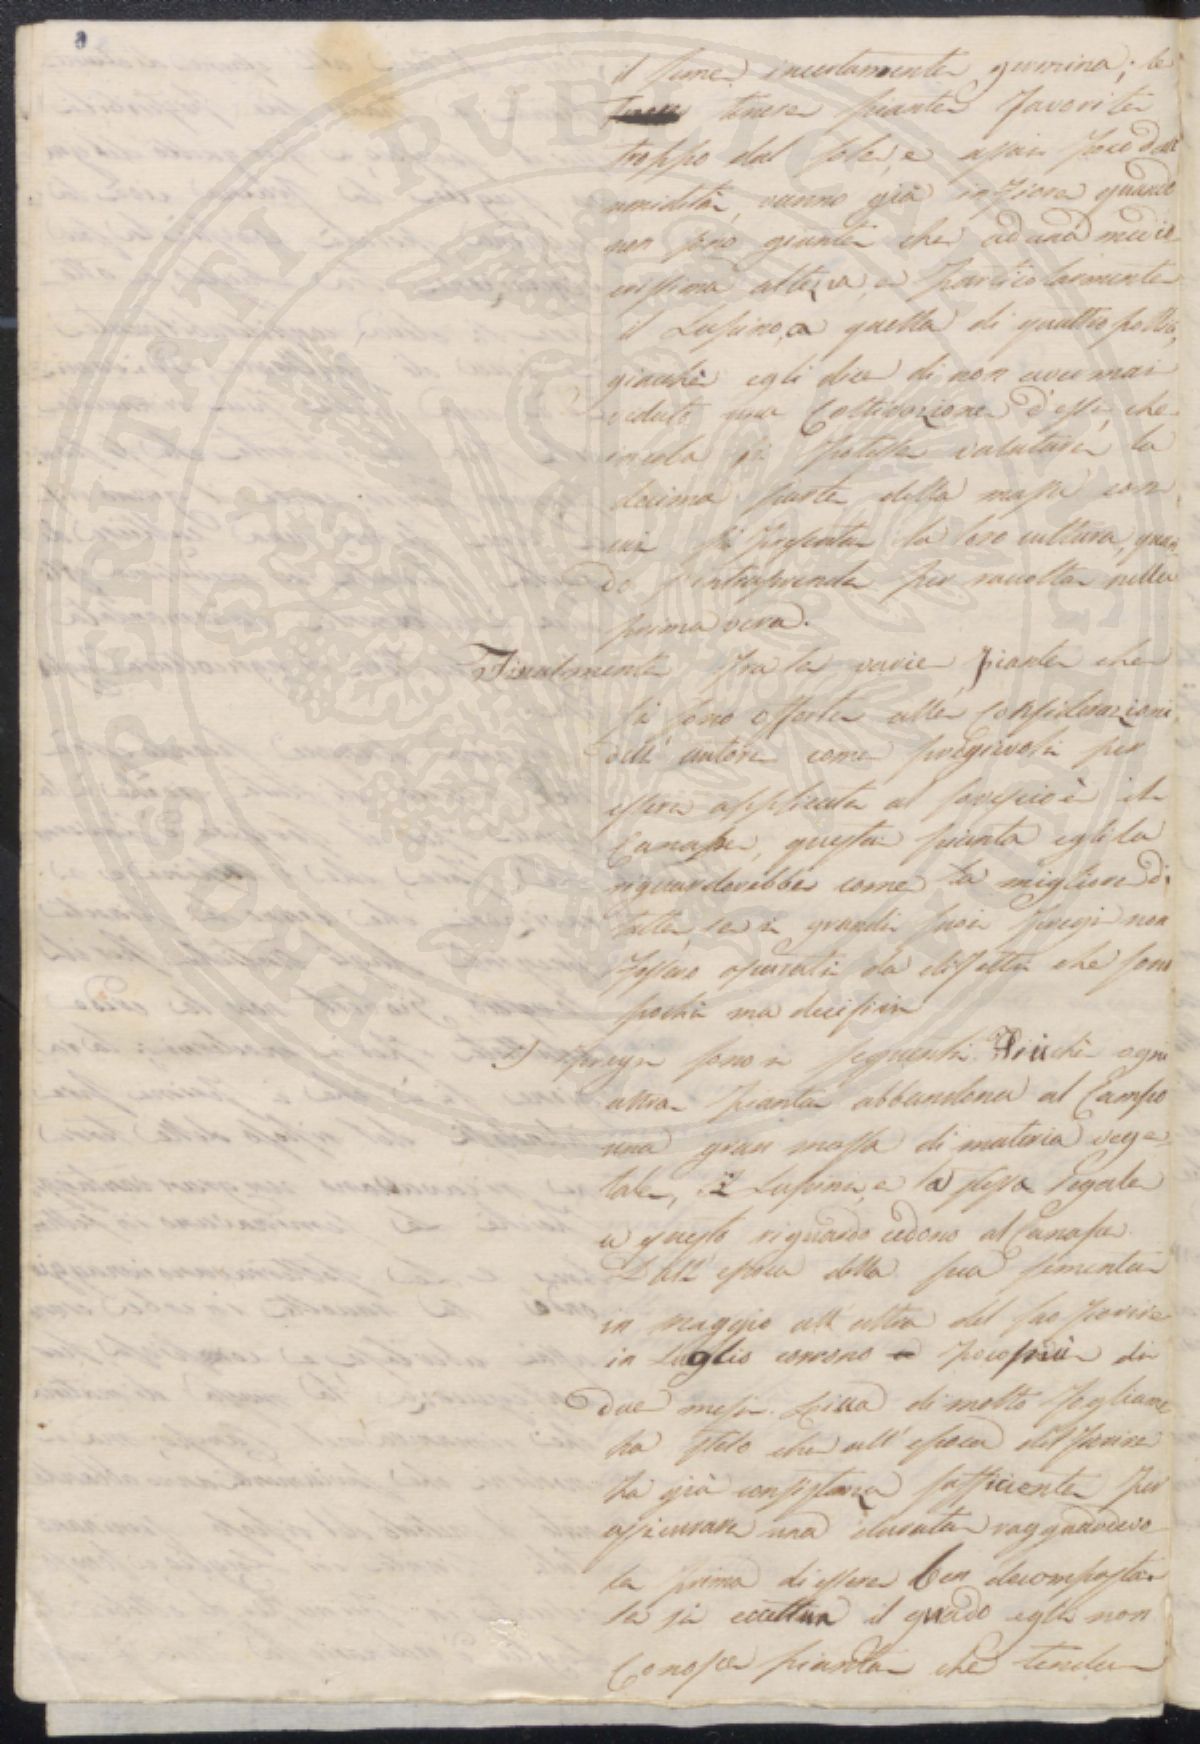 6
il seme incertamente germina; le
tenere piante favorite
troppo dal sole, e assai poco dall'
umidità, vanno già in fiore quando
non sono giunte che ad una medio-
crissima altezza, e particolarmente
il Lupino, a quella di quattro pollici,
giacchè egli dice di non aver mai
veduto una Coltivazione d'essi, che
in cola si potesse valutare la
decima parte della massa con
cui si presenta la loro cultura, quan-
do s'intraprenda per raccolta nella
primavera.
Finalmente fra le varie piante che
si sono offerte alle Considerazioni
dell'autore come pregievoli per
essere applicate al sovescio è il
Canape, questa pianta egli la
riguarderebbe come la migliore di
tutte, se i grandi suoi pregi non
fossero oscurati da difetti che sono
pochi ma decisivi
I pregi sono i seguenti. Più che ogni
altra pianta abbandona al Campo
una gran massa di materia vege-
tale, il Lupino, e la stessa Segale
a questo riguardo cedono al Canape.
Dall'epoca della sua sementa
in maggio all'altra del suo fiorire
in Luglio corrono poco più di
due mesi. Ricca di molto fogliame
ha stelo che all'epoca del fiorire
ha già consistenza sufficiente per
assicurare una durata ragguardevo-
le prima di essere ben decomposta.
Se si eccettua il guado egli non
Conosce pianta che tenda